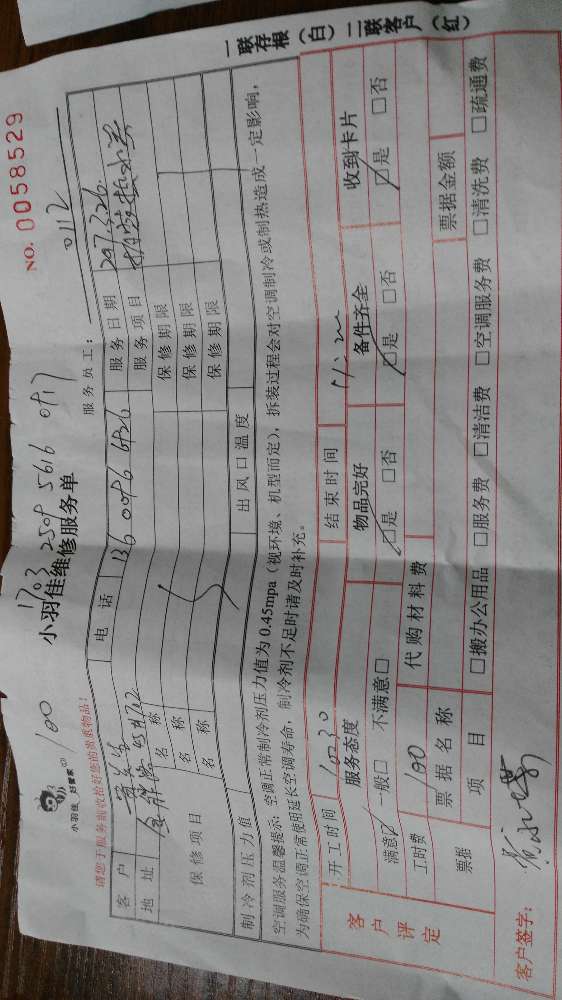 一联存根（白）二联客户（红）
NO. 0058529
小羽佳 好管家
100
1703 2509 5616 0917
小羽佳维修服务单
请您于服务前收拾好您的贵重物品！
服务员工： 0112
客户
电话 136 0096 6926
服务日期
地址
服务项目
保修项目
名称 保修期限
名称 保修期限
名称 保修期限
制冷剂压力值
出风口温度
空调服务温馨提示：空调正常制冷剂压力值为0.45mpa（视环境、机型而定），拆装过程会对空调制冷或制热造成一定影响，
为确保空调正常使用延长空调寿命，制冷剂不足时请及时补充。
客户评定
开工时间 10:30
结束时间
服务态度 物品完好 备件齐全 收到卡片
满意☑ 一般□ 不满意□ ☑是 □否 ☑是 □否 ☑是 □否
工时费 100 代购材料费
票据 票据名称 票据金额
项目 □搬办公用品 □服务费 □清洁费 □空调服务费 □清洗费 □疏通费
客户签字：